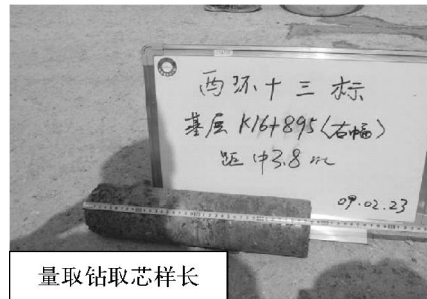 西环十三标
基层 K16+895(右幅)
距中3.8m
09.02.23
量取钻取芯样长